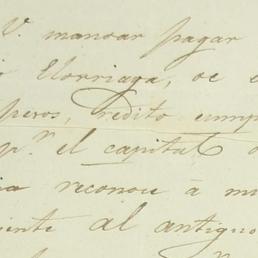 V. mandar pagar
Elorriaga, de
pesos, rédito cump
pr. el capital
reconoce á mi
iente al antiguo